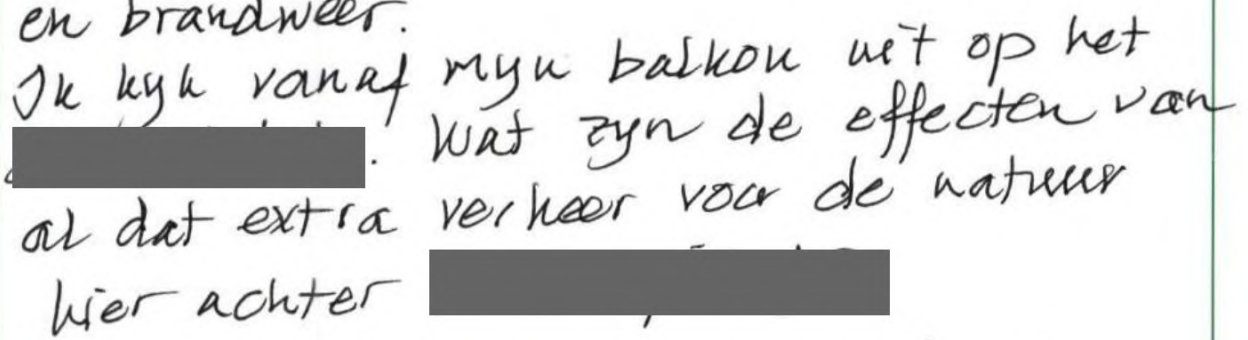 en brandweer.
Ik kyk vanaf myn balkon uit op het
. Wat zyn de effecten van
al dat extra verkeer voor de natuur
hier achter